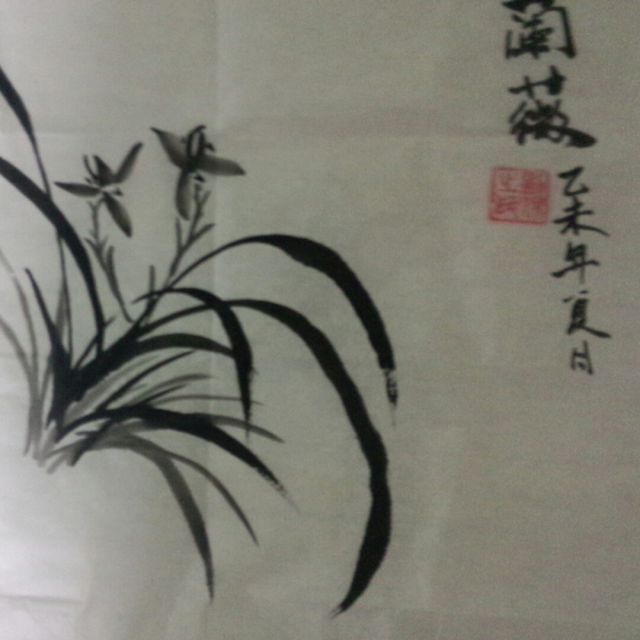 蘭薇
乙未年夏月